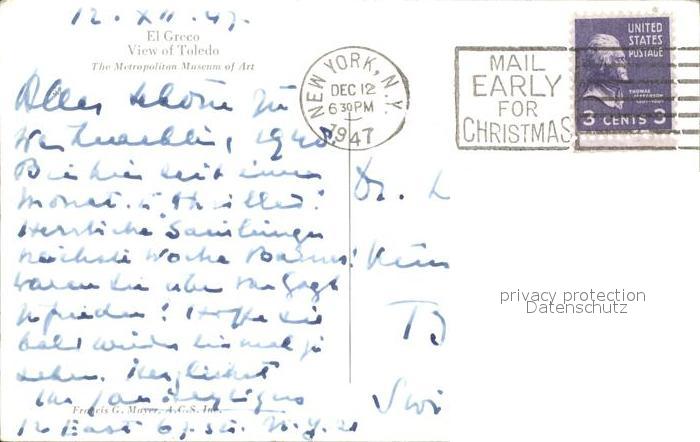 12. XII. 47.
El Greco
View of Toledo
The Metropolitan Museum of Art
Alles schöne zu
Weihnachten, 1948.
Bin hier seit einem
Monat. u. thrilled!
Herrliche Samlungen
nächste Woche Barnes!
waren Sie über van Gogh
zufrieden? Hoffe Sie
bald wieder einmal zu
sehen. Herzlichst
Ihr
Francis G. Mayer, A.C.S. Inc.
12 East 67. str. N.Y. 21
NEW YORK, N.Y.
DEC 12
6 30 PM
1947
MAIL
EARLY
FOR
CHRISTMAS
UNITED
STATES
POSTAGE
THOMAS
JEFFERSON
3 CENTS 3
Dr. L
Swi
privacy protection
Datenschutz